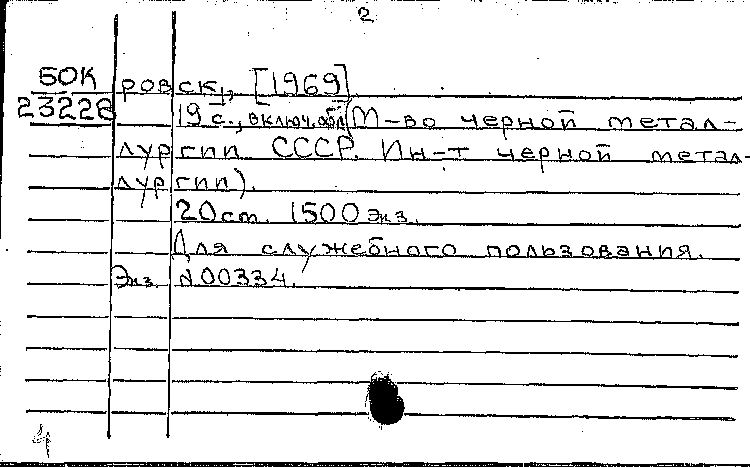 2
БОК ровск, [1969]
23228 19 с., включ. обл (М-во черной метал-
лургии СССР. Ин-т черной метал-
лургии).
20 см. 1500 экз.
Для служебного пользования.
Экз. №00334.
4